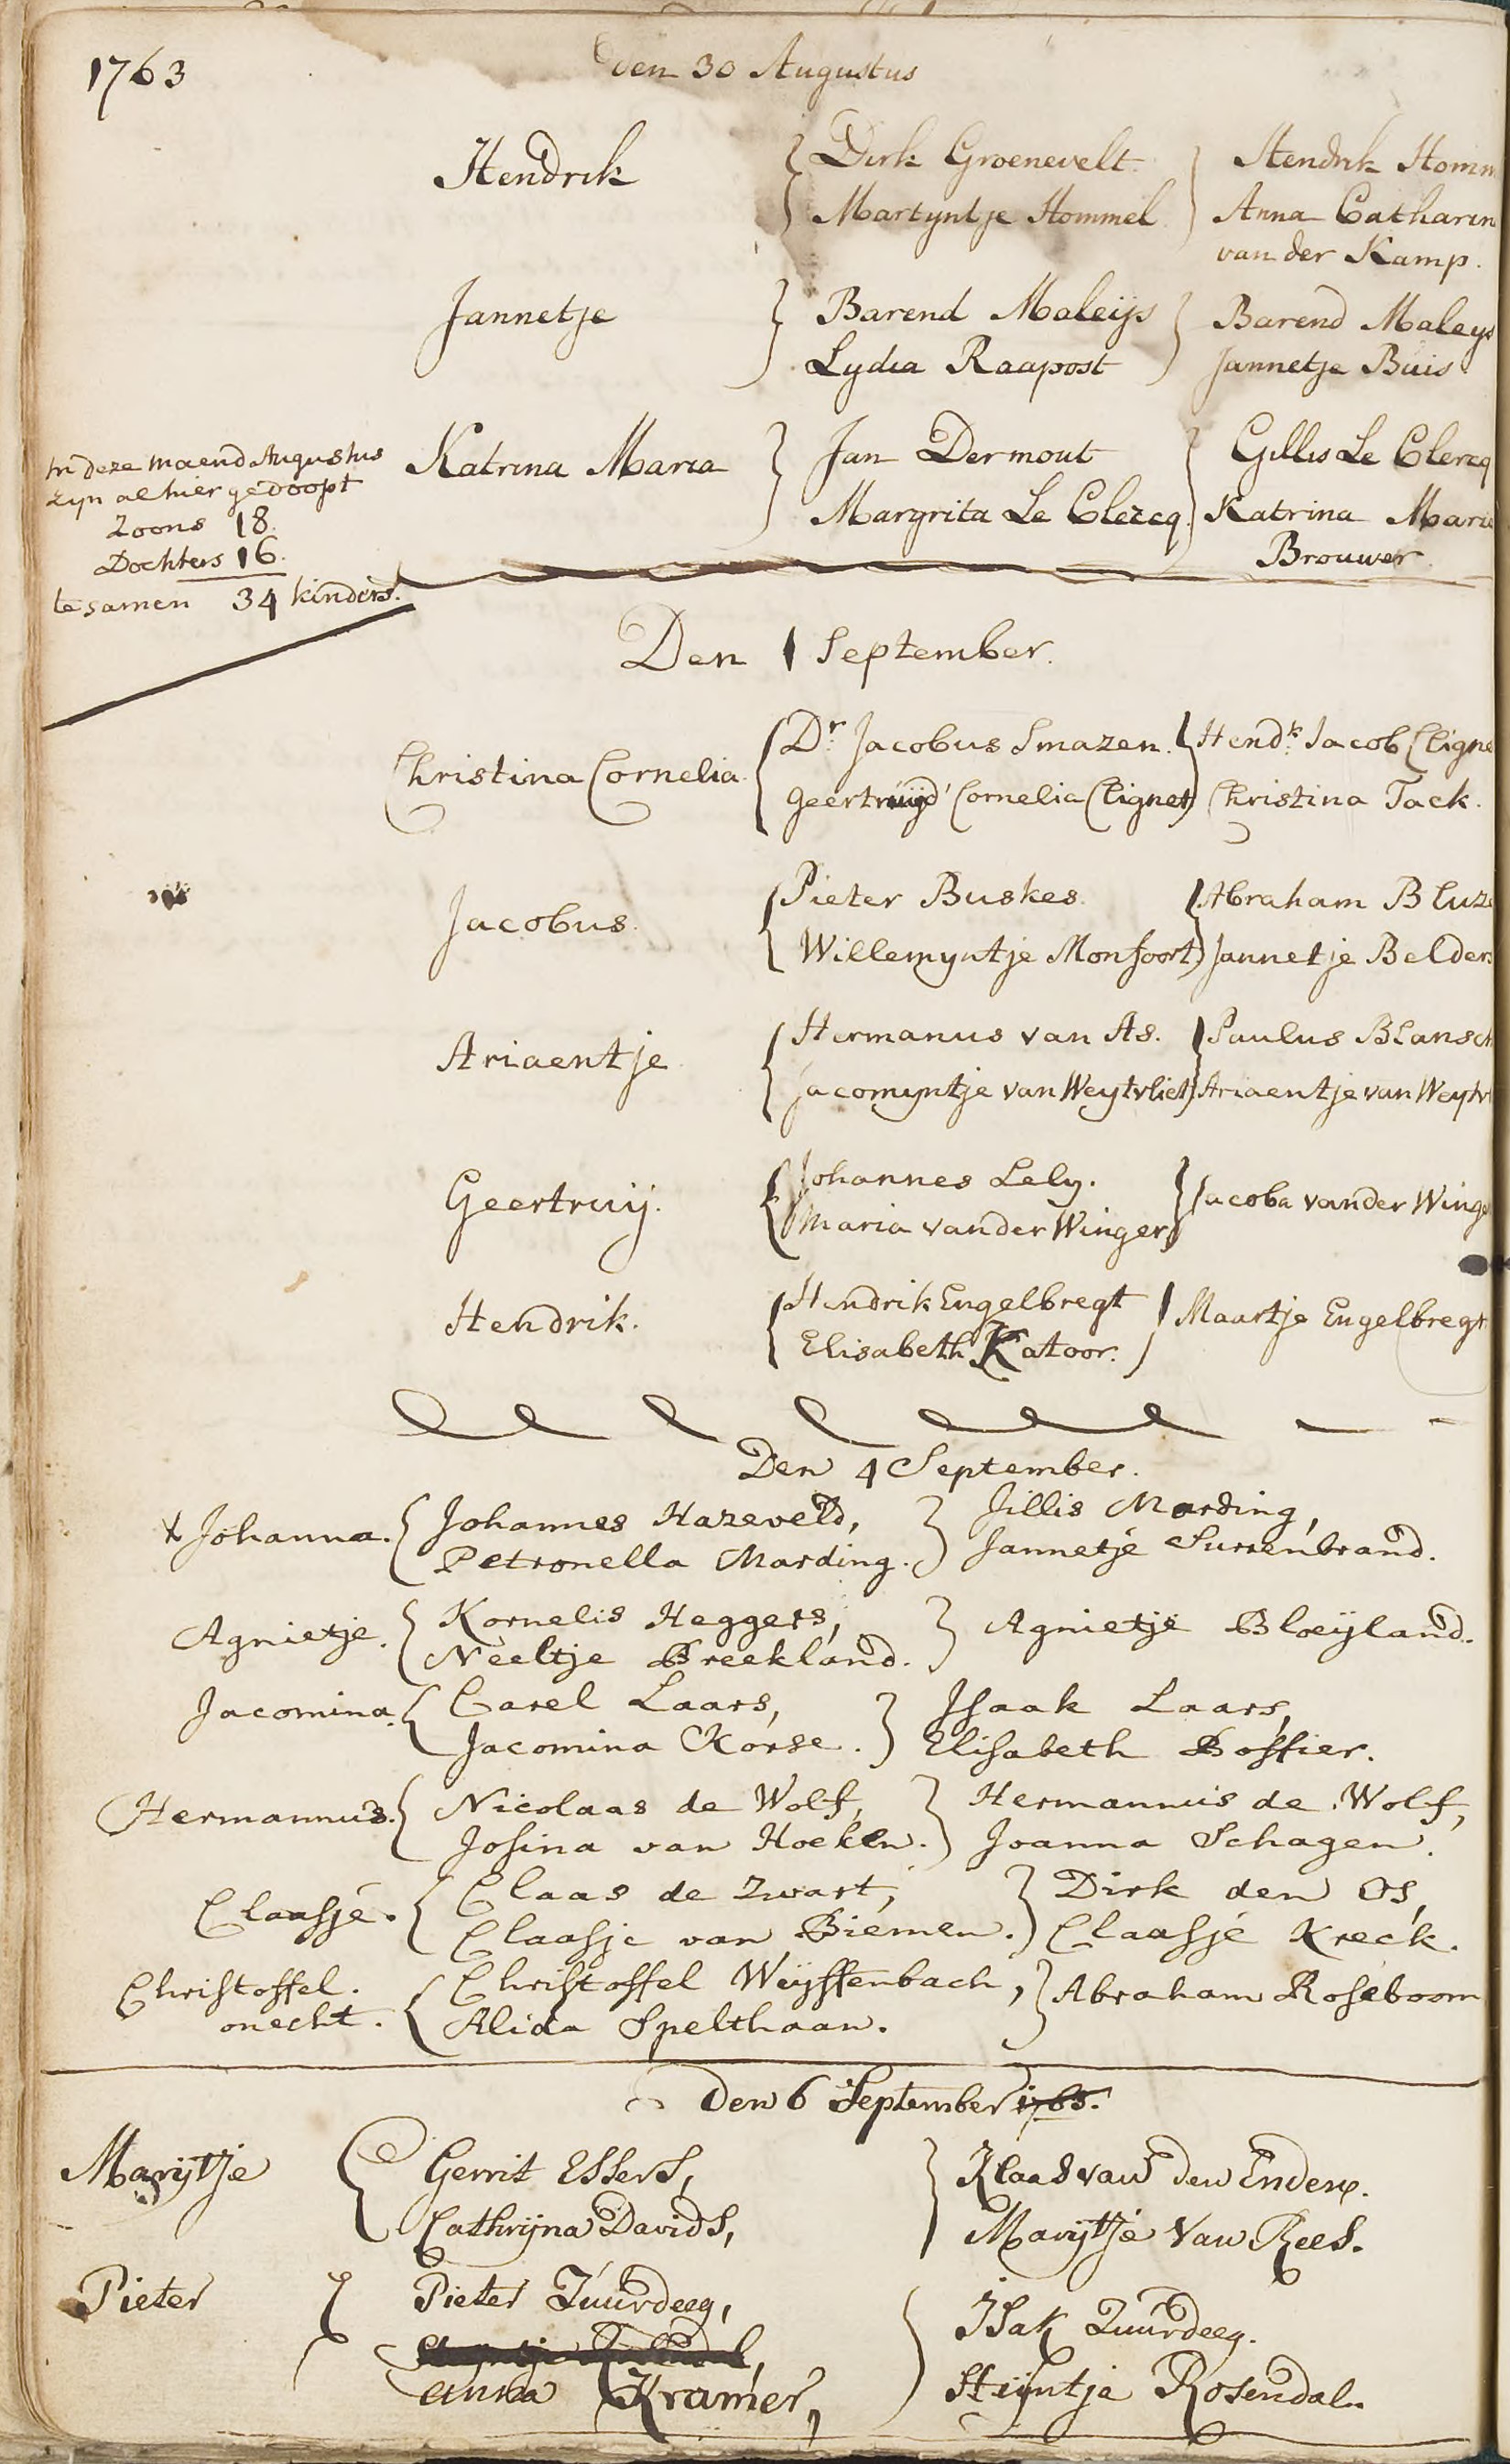 1763
Den 30 Augustus
Hendrik
Dirk Groenevelt
Martyntje Hommel
Hendrik Homm
Anna Catharin
van der Kamp.
Jannetje
Barend Maleijs
Lydia Raapost
Barend Maleys
Jannetje Buis
In deze maend Augustus
zyn alhier gedoopt
Zoons 18.
Dochters 16.
te samen 34 kinders.
Katrina Maria
Jan Dermout
Margrita Le Clercq
Gillis Le Clercq
Katrina Maria
Brouwer
Den 1 September.
Christina Cornelia.
Dr. Jacobus Smazen.
Geertruijd Cornelia Clignet
Hendk. Jacob Cligne
Christina Tack.
Jacobus.
Pieter Buskes.
Willemyntje Monfoort.
Abraham Bluz
Jannetje Belder
Ariaentje
Hermanus van As.
Jacomyntje van Weytvliet
Paulus Blansch
Ariaentje van Weytv
Geertruij.
Johannes Lely.
Maria vander Winger
Jacoba vander Winge
Hendrik.
Hendrik Engelbregt
Elisabeth Katoor.
Maartje Engelbregt
Den 4 September.
+ Johanna.
Johannes Hazeveld,
Petronella Marding.
Jillis Marding,
Jannetje Surrenbrand.
Agnietje.
Kornelis Heggers,
Neeltje Breekland.
Agnietje Bloeyland.
Jacomina.
Carel Laars,
Jacomina Korse.
Isaak Laars,
Elisabeth Boffier.
Hermannus.
Nicolaas de Wolf,
Josina van Hoeken.
Hermannus de Wolf,
Joanna Schagen.
Claasje.
Claas de Zwart,
Claasje van Biemen.
Dirk den Os,
Claasje Kreck.
Christoffel.
onecht.
Christoffel Weyffenbach,
Alida Spelthaan.
Abraham Roseboom
Den 6 September 1763.
Marijtje
Gerrit Essers,
Cathrijna Davids,
Klaas van den Enden.
Marijtje Van Rees.
Pieter
Pieter Zuurdeeg,
Anna Kramer,
Isak Zuurdeeg.
Stijntje Rosendal.